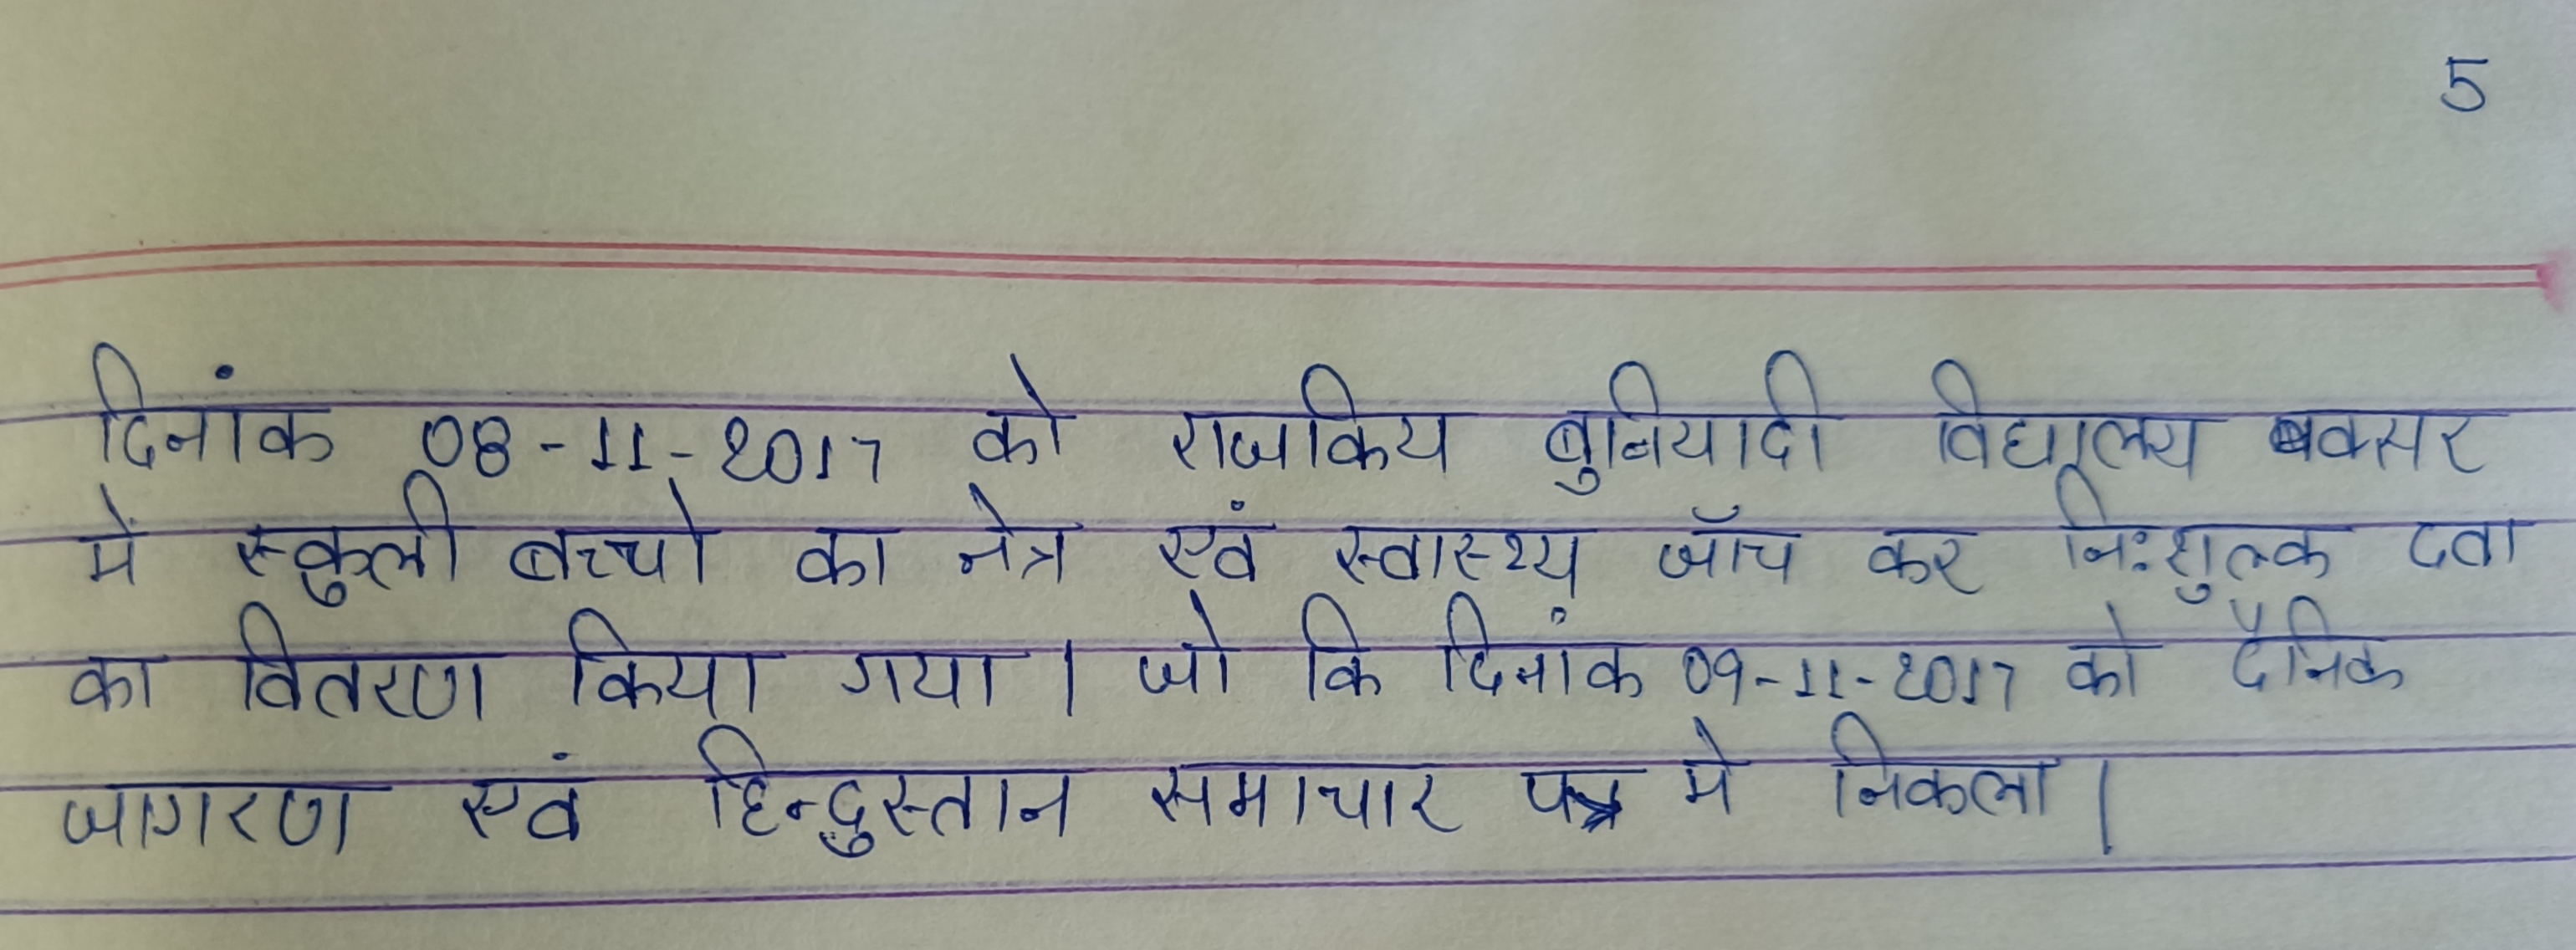 5
दिनांक 08-11-2017 को राजकिय बुनियादी विद्यालय बक्सर
में स्कुली बच्चो का नेत्र एवं स्वास्थ्य जाँच कर निःशुल्क दवा
का वितरण किया गया । जो कि दिनांक 09-11-2017 को दैनिक
जागरण एवं हिन्दुस्तान समाचार पत्र मे निकला ।